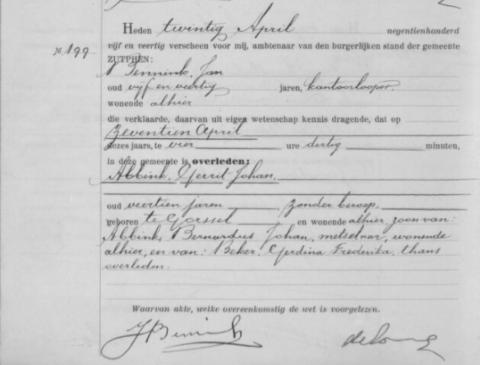 Heden twintig April negentienhonderd
N. 199
vijf en veertig verscheen voor mij, ambtenaar van den burgerlijken stand der gemeente
ZUTPHEN:
Bennink, Jan
oud vijf en veertig jaren, kantoorlooper
wonende alhier
die verklaarde, daarvan uit eigen wetenschap kennis dragende, dat op
zeventien April
dezes jaars, te vier ure dertig minuten,
in deze gemeente is overleden:
Abbink, Gerrit Johan.
oud veertien jaren, zonder beroep,
geboren te Gorssel, en wonende alhier, zoon van:
Abbink, Bernardus Johan, metselaar, wonende
alhier, en van: Beker, Gerdina Frederika, thans
overleden.
Waarvan akte, welke overeenkomstig de wet is voorgelezen.
JBennink